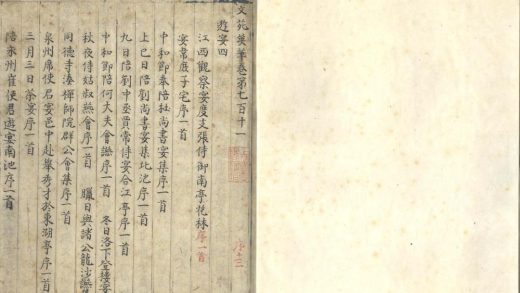 文苑英華卷第七百十一
序十三
遊宴四
江西觀察宴度支張侍御南亭花林序一首
宴韋庶子宅序一首
中和節奉陪杜尚書宴集序一首
上巳日陪劉尚書宴集北池序一首
九日陪劉中丞賈常侍宴合江亭序一首
中和節陪何大夫會讌序一首 冬日洛下登樓宴
秋夜侍姑叔讌會序一首 臘日與諸公龍沙讌
同德寺湊禪師院群公會集序一首
泉州席使君宴邑中赴舉秀才於東湖亭序一首
三月三日茶宴序一首
陪永州崔使君遊宴南池序一首